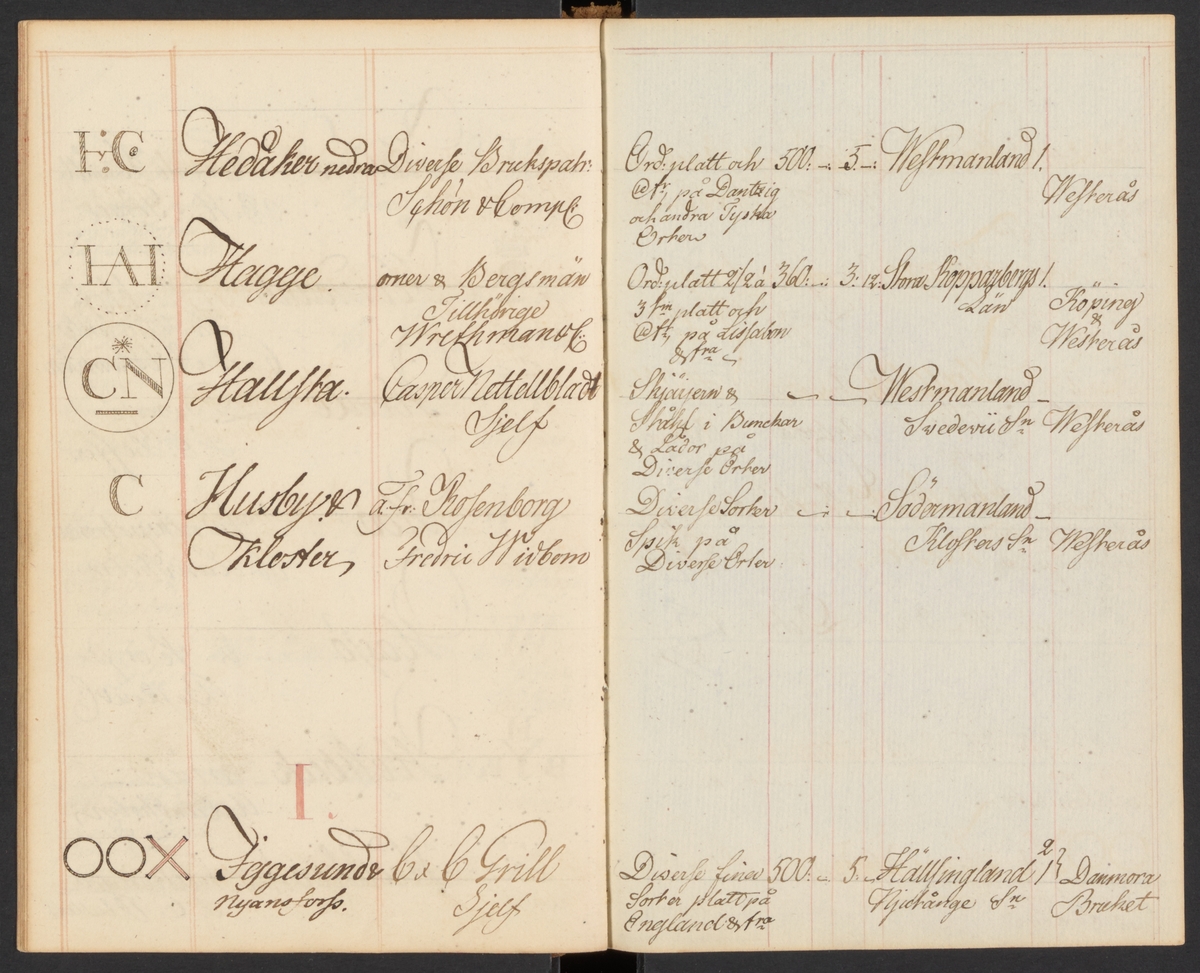 H C Hedåker nedra Diverse Brukspatr: Ord: platt och 500: -: 5 -: Westmanland 1.
Schön & Comp: på Dantzig Westerås
och andra Tyska
Orter
HAH Hagge. oner & Bergsmän Ord: platt 2 1/2 à 360: -: 3: 12: Stora Kopparbergs 1.
Tillhörige 3 platt och Län Köping
Wrethman & C: på Lissabon & Westerås
& fra
CN Hallsta. Casper Nettelbladt & - - Westmanland -
Sjelf i Bunckar Svedevii Sn Westerås
& Lådor på
Diverse Orter
C Husby & a. fr: Rosenborg Diverse Sorter -: - Södermanland -
Kloster, Fredric Widbom Spik på Klosters Sn Westerås
Diverse Orter
I.
OOX Iggesunds C & C Grill Diverse fina 500: - 5: - Hällsingland 2 1 } Danmora
Nyansforss. Sjelf Sorter platt på Njutånge Sn Bruket
England & fra